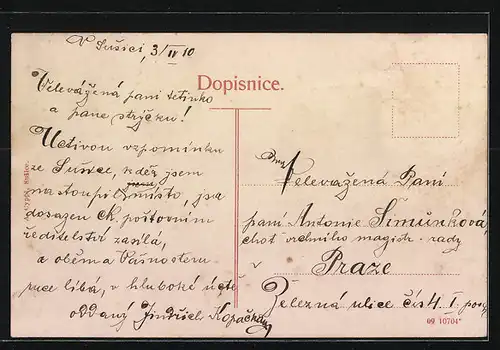 V Sušici, 3/IV 10
Dopisnice.
Velevážená paní tetinko
a pane strýčku!
Uctivou vzpomínku
ze Sušice, kdež jsem
nastoupil místo, jsa
dosazen ck. poštovním
ředitelství zasílá,
a oběma Vašnostem
ruce líbá, v hluboké úctě
oddaný Jindřich Kopačka
Velevážená Paní
paní Antonie Šimůnková
choť vrchního magistr. rady
v Praze
Železná ulice čís 4. I. posch
09 10704*